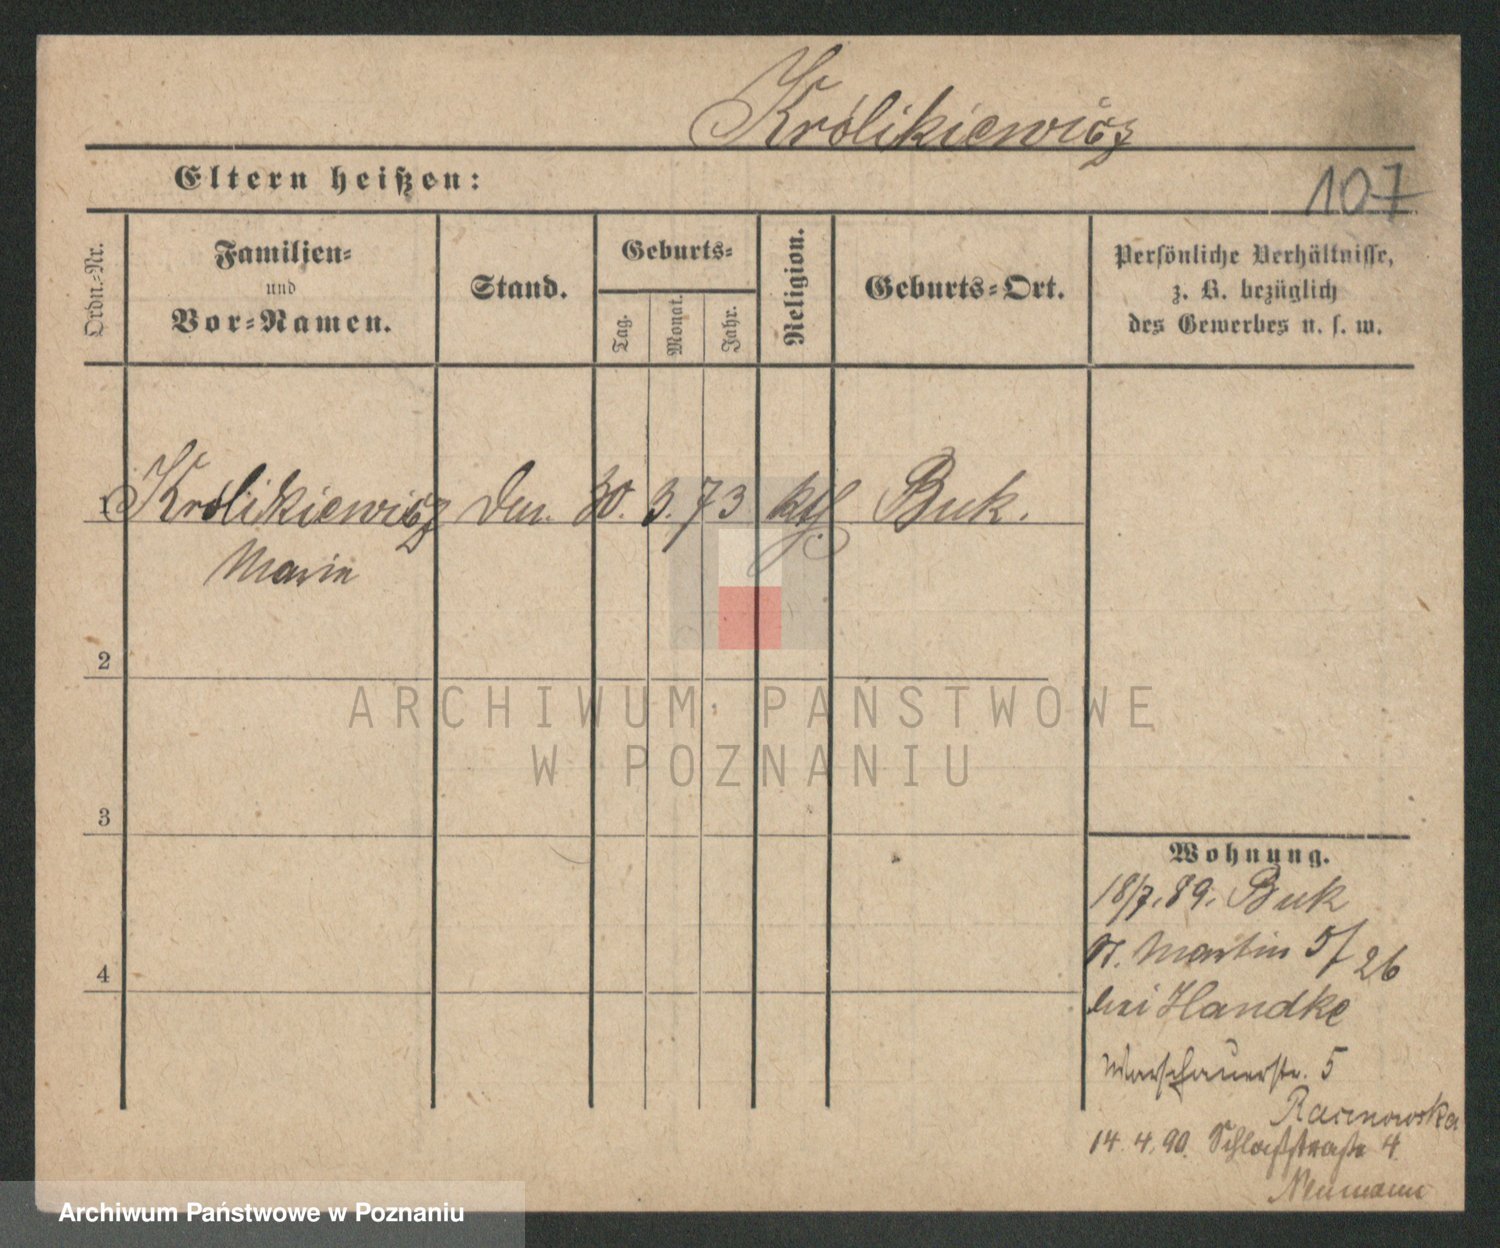 Królikiewicz
Eltern heißen:
107
Ordn.-Nr.
Familien-
und
Vor-Namen.
Stand.
Geburts-
Tag.
Monat.
Jahr.
Religion.
Geburts-Ort.
Persönliche Verhältnisse,
z. B. bezüglich
des Gewerbes u. s. w.
1 Królikiewicz 30. 3. 73 kth. Buk.
Marie
2
3
4
Wohnung.
18/7. 89. Buk
St. Martin 26
bei Handke
Warschauerstr. 5
14. 4. 90. Schloßstraße 4
Neumann
ARCHIWUM PAŃSTWOWE
W POZNANIU
Archiwum Państwowe w Poznaniu